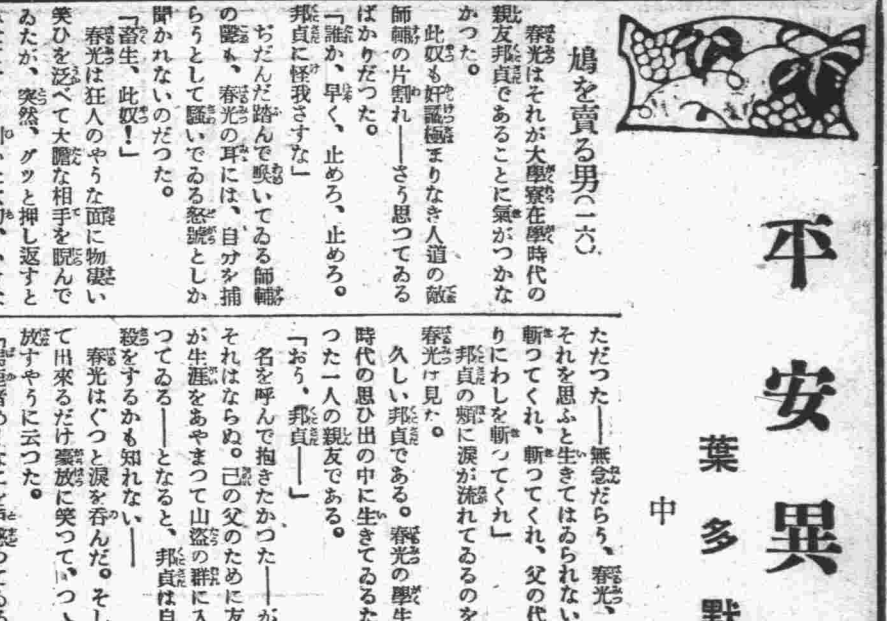 平安異
葉多默
中
鳩を賣る男(一六)
春光はそれが大學寮在學時代の
親友邦貞であることに氣がつかな
かつた。
此奴も奸譎極まりなき人道の敵
師輔の片割れ——さう思つてゐる
ばかりだつた。
「誰か、早く、止めろ、止めろ。
邦貞に怪我さすな」
ぢだんだ踏んで喚いてゐる師輔
の聲も、春光の耳には、自分を捕
らうとして騷いでゐる怒號としか
聞かれないのだつた。
「畜生、此奴!」
春光は狂人のやうな面に物凄い
笑ひを泛べて大膽な相手を睨んで
ゐたが、突然、グツと押し返すと
ただつた——無念だらう、春光、
それを思ふと生きてはゐられない
斬つてくれ、斬つてくれ、父の代
りにわしを斬つてくれ」
邦貞の頬に涙が流れてゐるのを
春光は見た。
久しい邦貞である。春光の學生
時代の思ひ出の中に生きてゐるた
つた一人の親友である。
「おう、邦貞——」
名を呼んで抱きたかつた——が
それはならぬ。己の父のために友
が生涯をあやまつて山盜の群に入
つてゐる——となると、邦貞は自
殺をするかも知れない——
春光はぐつと涙を呑んだ。そし
て出來るだけ豪放に笑つて、つ
放すやうに云つた。